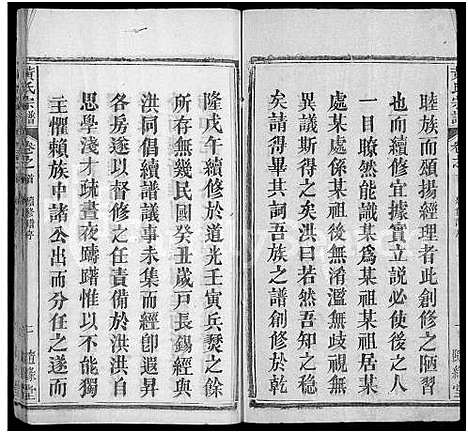 睦族而頌揚經理者此創修之陋習
也而續修宜據實立說必使閱者於
一目瞭然能識某爲某祖某居某居
處某處係某祖後無淆濫無歧視無
異議斯得之矣洪曰若然吾知之稳
矣請得畢其詞吾族之譜創修於乾
隆戊午續修於道光壬寅兵燹之餘
所存無幾民國癸丑歲戸長錫經與
洪同倡續譜議事未集而經卽遐昇
各房遂以督修之任責備於洪洪自
思學淺才疎晝夜躊躇惜不能獨
主懼賴族中諸公出而分任之遂而
黃氏宗譜
卷之首
續修譜序